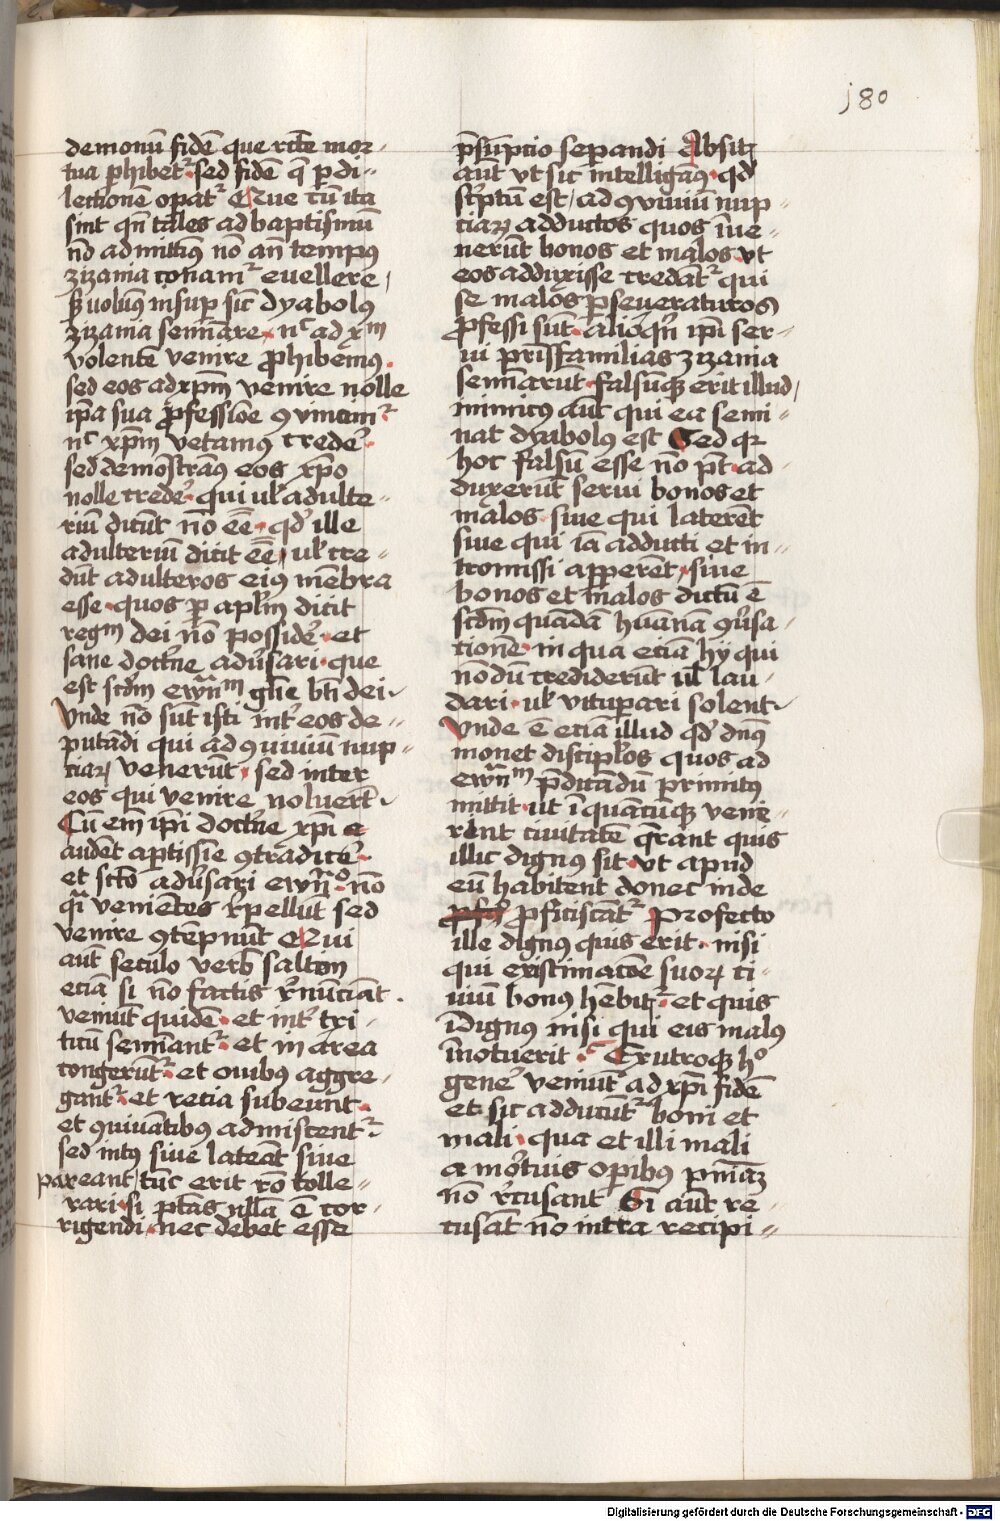 180
demonū fidē que recte mor-
tua ꝑhibetᷣ. sed fidē q̄ ꝑ di-
lectionē opatᷣ Que cū ita
sint qn̄ tales ad baptismū
nō admittimꝰ nō an̄ tempꝰ
zizania conamᷣ euellere,
sꝫ uolumꝰ insuꝑ sic dyabolꝰ
zizania seminare. nᶜ ad xᵐ
volentē venire ꝓhibemꝰ.
sed eos ad xpm̄ venire nolle
ip̄a sua ꝓfessiōe ꝯuincimᷣ
nᶜ xpm̄ vetamꝰ credeꝰ.
sed demōstramꝰ eos xp̄o
nolle credeꝰ. qui ul̛ adulte-
riū dicūt nō eē̄. qd̛ ille
adulteriū dicit eē̄, ul̛ cre-
dūt adulteros eiꝰ mēbra
esse. quos ꝑ apl̄m dicit
regᵐ dei nō possideꝰ. et
sane doct̛ne adūsari. que
est scd̄m ewn̄ᵐ gl̄ie bt̄i dei.
Unde nō sūt isti int̛ eos de-
putādi qui ad ꝯuiuiū nup-
ciaꝝ venerūt. sed inter
eos qui venire noluerūt.
Cū em̄ ip̄i doct̛ne xp̄i
audēt aptissīe ꝯtradiceꝰ.
et sct̄o adūsari ewn̄°. nō
qͥ venientes r̛pellūt̛ sed
venire ꝯtēpnūt Qui
aūt seculo verb̛ saltem
eciā si nō factis r̛nūciāt.
veniūt quidē. et int̛ tri-
ticū seminantᷣ. et in area
congerūtᷣ. et ouibꝰ aggre-
gantᷣ. et recia subeunt.
et ꝯuiuātibꝰ admiscentᷣ.
sed intꝰ siue lateāt siue
pareant, tūc erit rō tolle-
rari. si ptās nulla ē cor-
rigendi. nec debet esse
p̄sūpcio seꝑandi Absit
aūt vt sic intelligamꝰ. qd̛
sc̛ptū est, ad ꝯuiuiū nup-
ciaꝝ adductos quos īue-
nerūt bonos et malos. vt
eos adduxisse credātᷣ qui
se malos ꝑseueraturos
ꝓfessi sūt. alioqͥn ip̄i ser-
ui pr̄isfamilias zizania
seminarūt. falsūqꝫ erit illud,
inimicꝰ aūt qui ea semi-
nat dyabolꝰ est Sed qꝛ
hoc falsū esse nō pt̄. ad-
duxerūt serui bonos et
malos. siue qui laterēt
siue qui iā adducti et in-
tromissi apperēt, siue
bonos et malos dictū ē
scd̄m quādā humanā ꝯūsa-
tionē. in qua eciā hij qui
nōdū crediderūt ul̛ lau-
dari. ul̛ vituꝑari solent.
Unde ē eciā illud qd̛ dn̄ꝰ
monet discipl̛os quos ad
ewn̄ᵐ p̄dicādū primitꝰ
mittit. ut ī quācūqꝫ vene-
rint ciuitatē q̄rant quis
illic dignꝰ sit. vt apud
eū habitent donec inde
ꝓficiscātᷣ Profecto
ille dignꝰ quis erit. nisi
qui existimacōe suoꝝ ci-
uiū bonꝰ hēbitᷣ. et quis
īdignꝰ nisi qui eis malus
īnotuerit. Ex utroqꝫ h°
geneꝰ veniūt ad xp̄i fidē
et sic adducūtᷣ boni et
mali. qua et illi mali
a mortuis oꝑibꝰ pn̄iaꝫ
nō r̛cusant Si aūt re-
cusāt nō intra recipi-
Digitalisierung gefördert durch die Deutsche Forschungsgemeinschaft - DFG